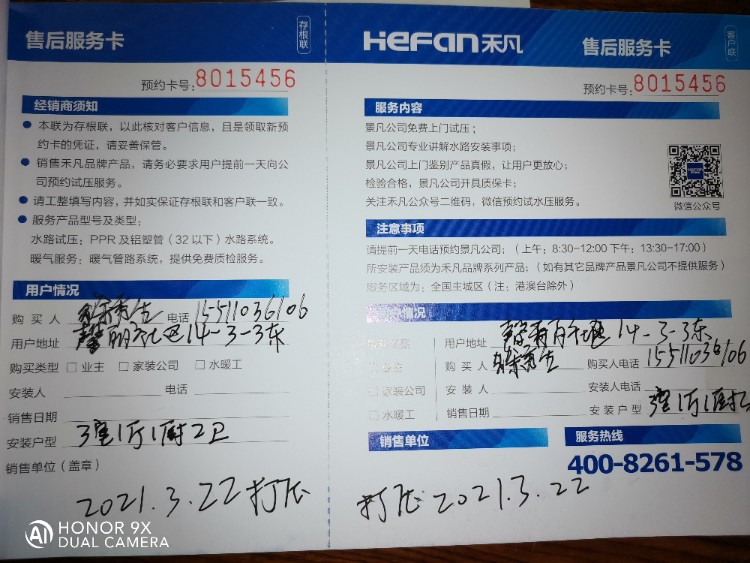 售后服务卡
存根联
预约卡号:8015456
经销商须知
● 本联为存根联，以此核对客户信息，且是领取新预
约卡的凭证，请妥善保管。
● 销售禾凡品牌产品，请务必要求用户提前一天向公
司预约试压服务。
● 请工整填写内容，并如实保证存根联和客户联一致。
● 服务产品型号及类型：
水路试压：PPR及铝塑管（32以下）水路系统。
暖气服务：暖气管路系统，提供免费质检服务。
用户情况
购 买 人 电话 15511036106
用户地址 馨丽社区14-3-3东
购买类型 □ 业主 □ 家装公司 □ 水暖工
安装人 电话
销售日期
安装户型 3室1厅1厨2卫
销售单位（盖章）
2021.3.22打压
HeFan禾凡
售后服务卡
客户联
预约卡号:8015456
服务内容
景凡公司免费上门试压；
景凡公司专业讲解水路安装事项；
景凡公司上门鉴别产品真假，让用户更放心；
检验合格，景凡公司开具质保卡；
关注禾凡公众号二维码，微信预约试水压服务。
微信公众号
注意事项
请提前一天电话预约景凡公司；（上午：8:30-12:00 下午：13:30-17:00）
所安装产品须为禾凡品牌系列产品；（如有其它品牌产品景凡公司不提供服务）
服务区域为：全国主城区（注：港澳台除外）
情况
用户地址 14-3-3东
购 买 人 购买人电话 15511036106
□ 家装公司 安 装 人 安装人电话
□ 水暖工 销售日期 安装户型 3室1厅1厨
销售单位
服务热线
400-8261-578
打压 2021.3.22
HONOR 9X
DUAL CAMERA